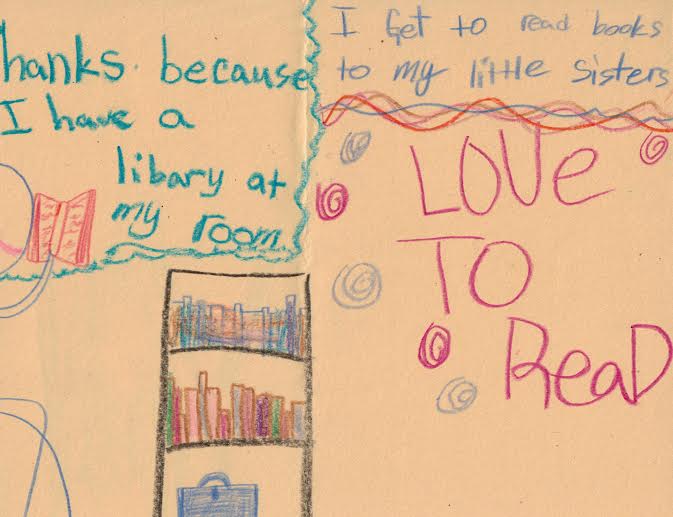 hanks. because
I have a
libary at
my room.
I Get to read books
to my little sisters
LOVe
TO
ReaD